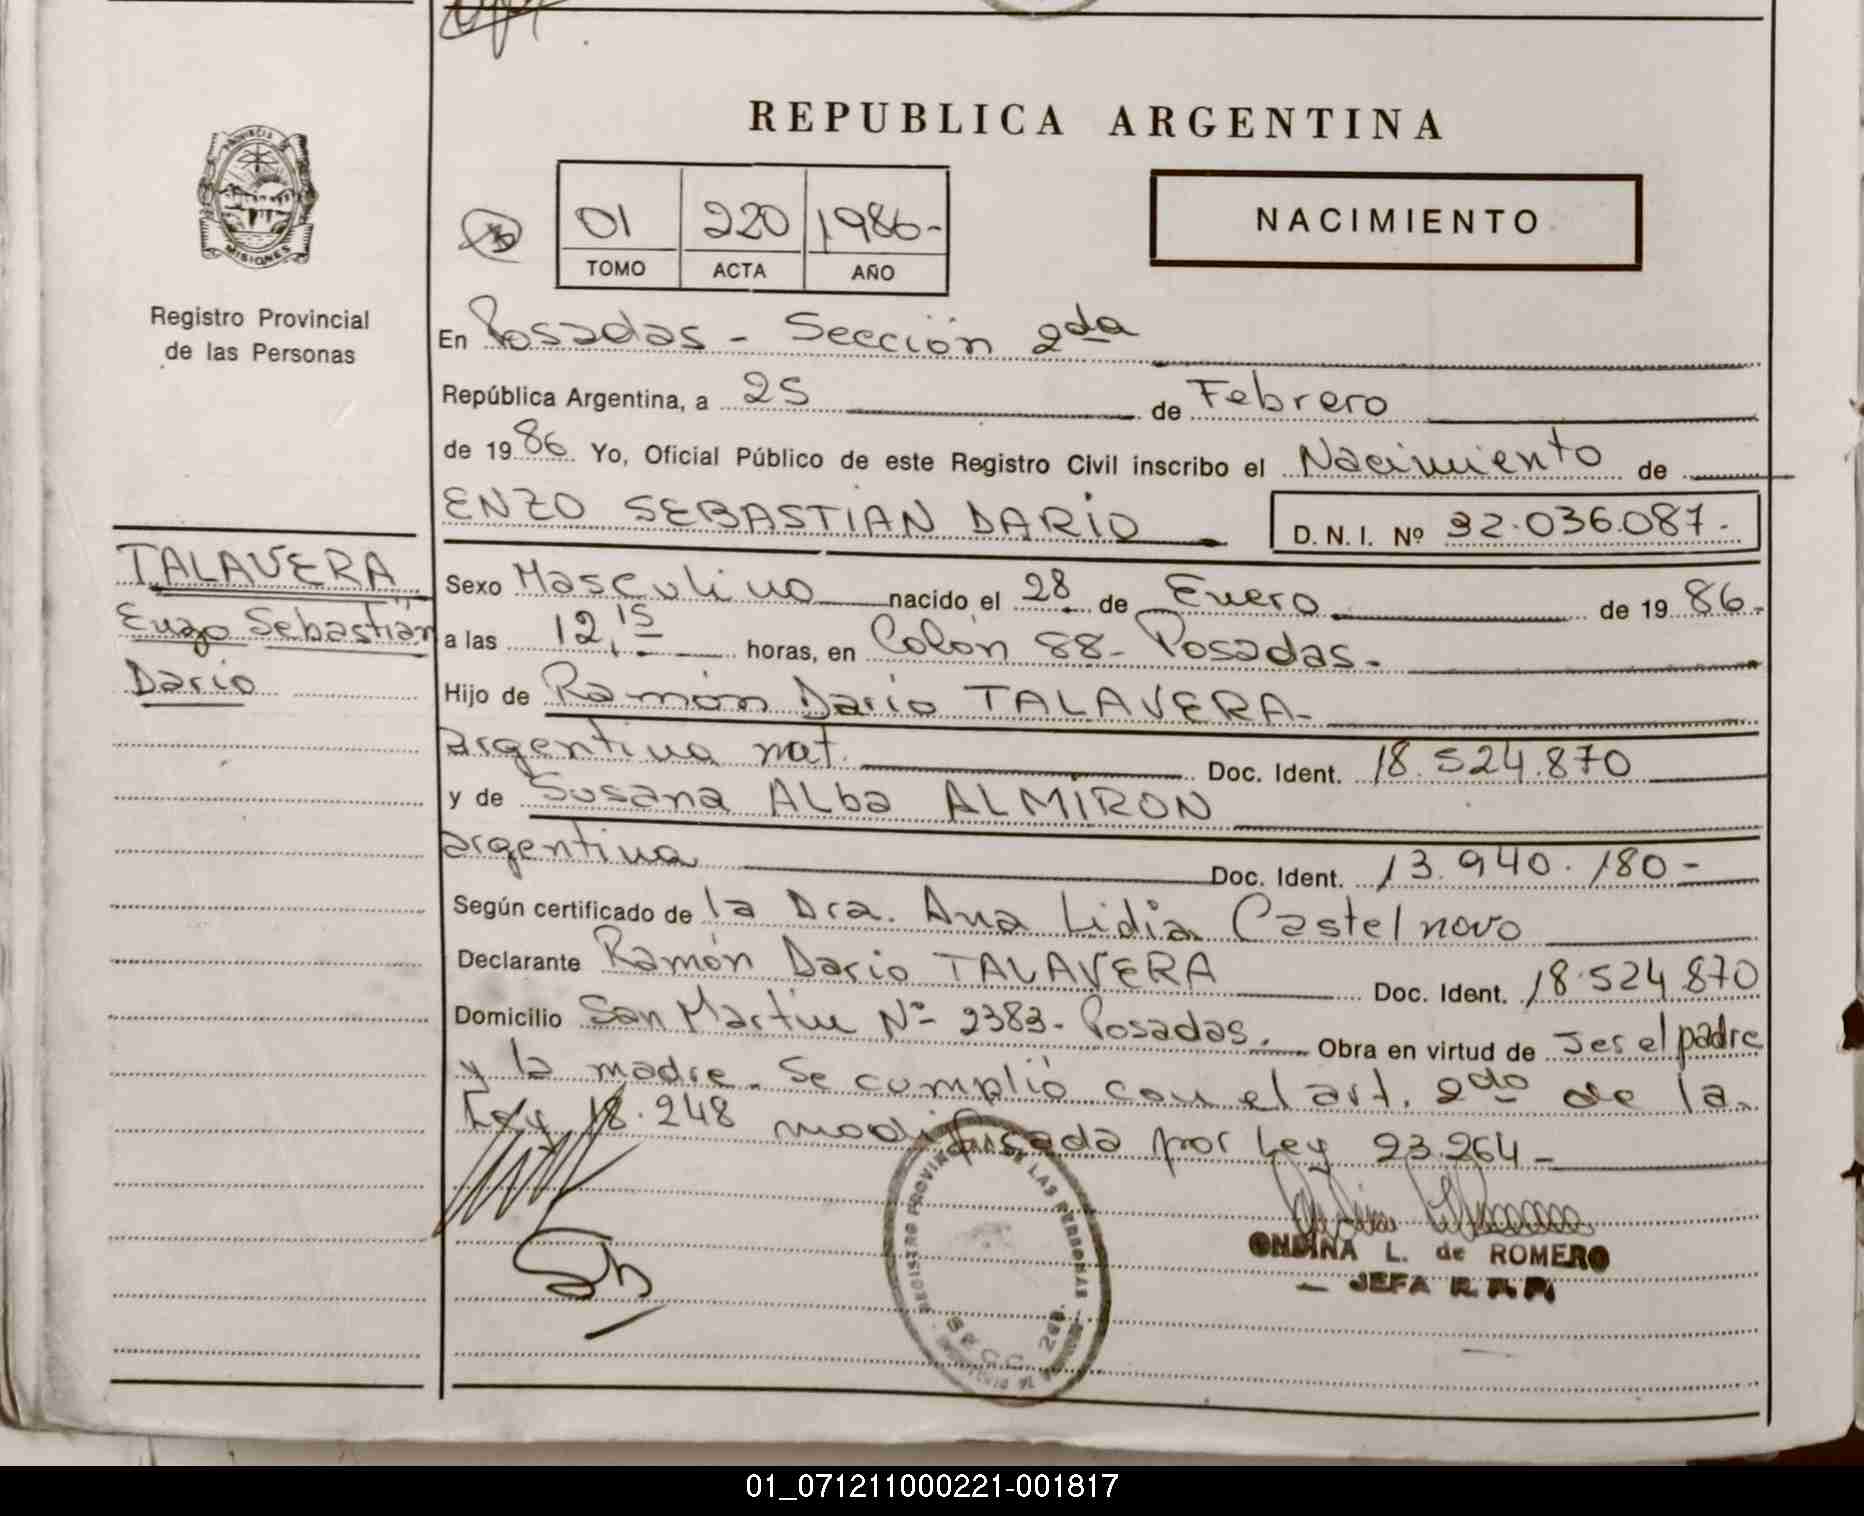 REPUBLICA ARGENTINA
PROVINCIA
MISIONES
Registro Provincial
de las Personas
01 220 1986-
TOMO ACTA AÑO
NACIMIENTO
En Posadas - Sección 2da
República Argentina, a 25 de Febrero
de 1986 Yo, Oficial Público de este Registro Civil inscribo el Nacimiento de
ENZO SEBASTIAN DARIO D. N. I. Nº 32.036.087.
TALAVERA
Enzo Sebastián
Dario
Sexo Masculino nacido el 28 de Enero de 1986.
a las 12,15 horas, en Colón 88- Posadas.
Hijo de Ramón Dario TALAVERA-
argentino nat. Doc. Ident. 18.524.870
y de Susana ALba ALMIRON
argentina Doc. Ident. 13.940.180-
Según certificado de la Dra. Ana Lidia Castelnovo
Declarante Ramón Dario TALAVERA Doc. Ident. 18.524.870
Domicilio San Martin Nº 2383- Posadas. Obra en virtud de ser el padre
y la madre. Se cumplió con el art. 2do de la
Ley 18.248 modificada por Ley 23.264-
REGISTRO PROVINCIAL DE LAS PERSONAS
SECC. 2da.
ONDINA L. de ROMERO
JEFA R.P.P.
01_071211000221-001817